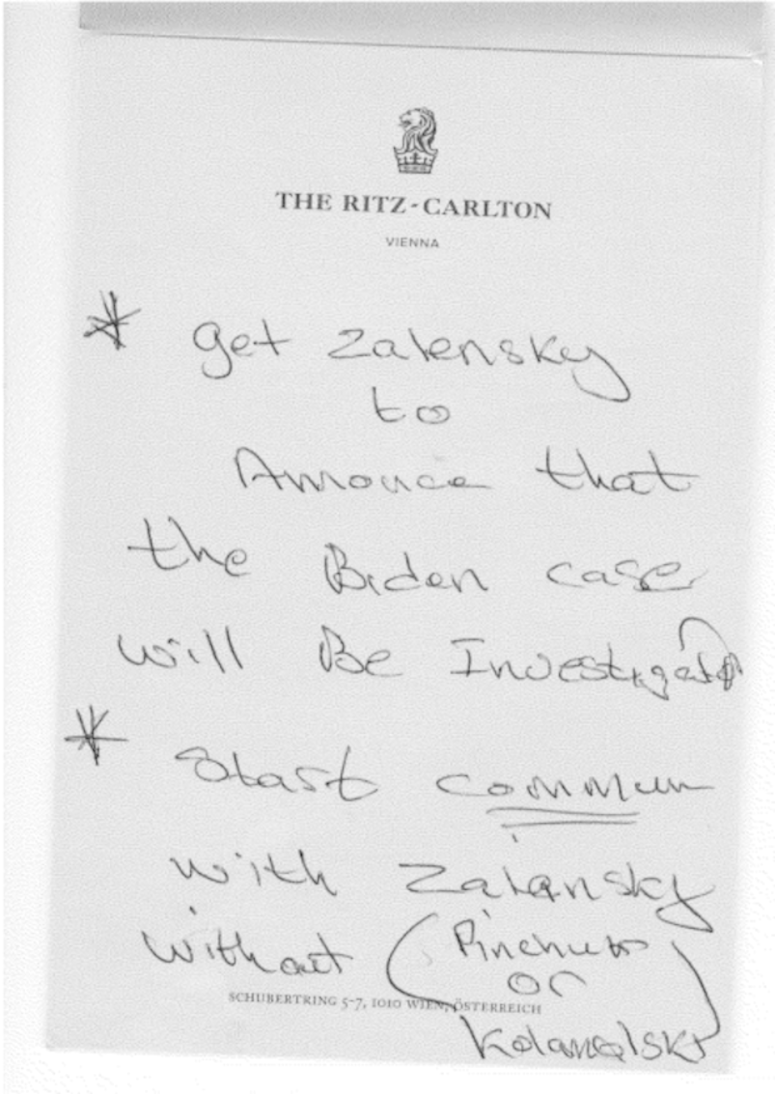 THE RITZ-CARLTON
VIENNA
* get Zalensky
to
Annouce that
the Biden case
will Be Investigated
* Start Commun
with Zalensky
without (Pinchuk
or
SCHUBERTRING 5-7, 1010 WIEN, ÖSTERREICH
Kolamoisky)